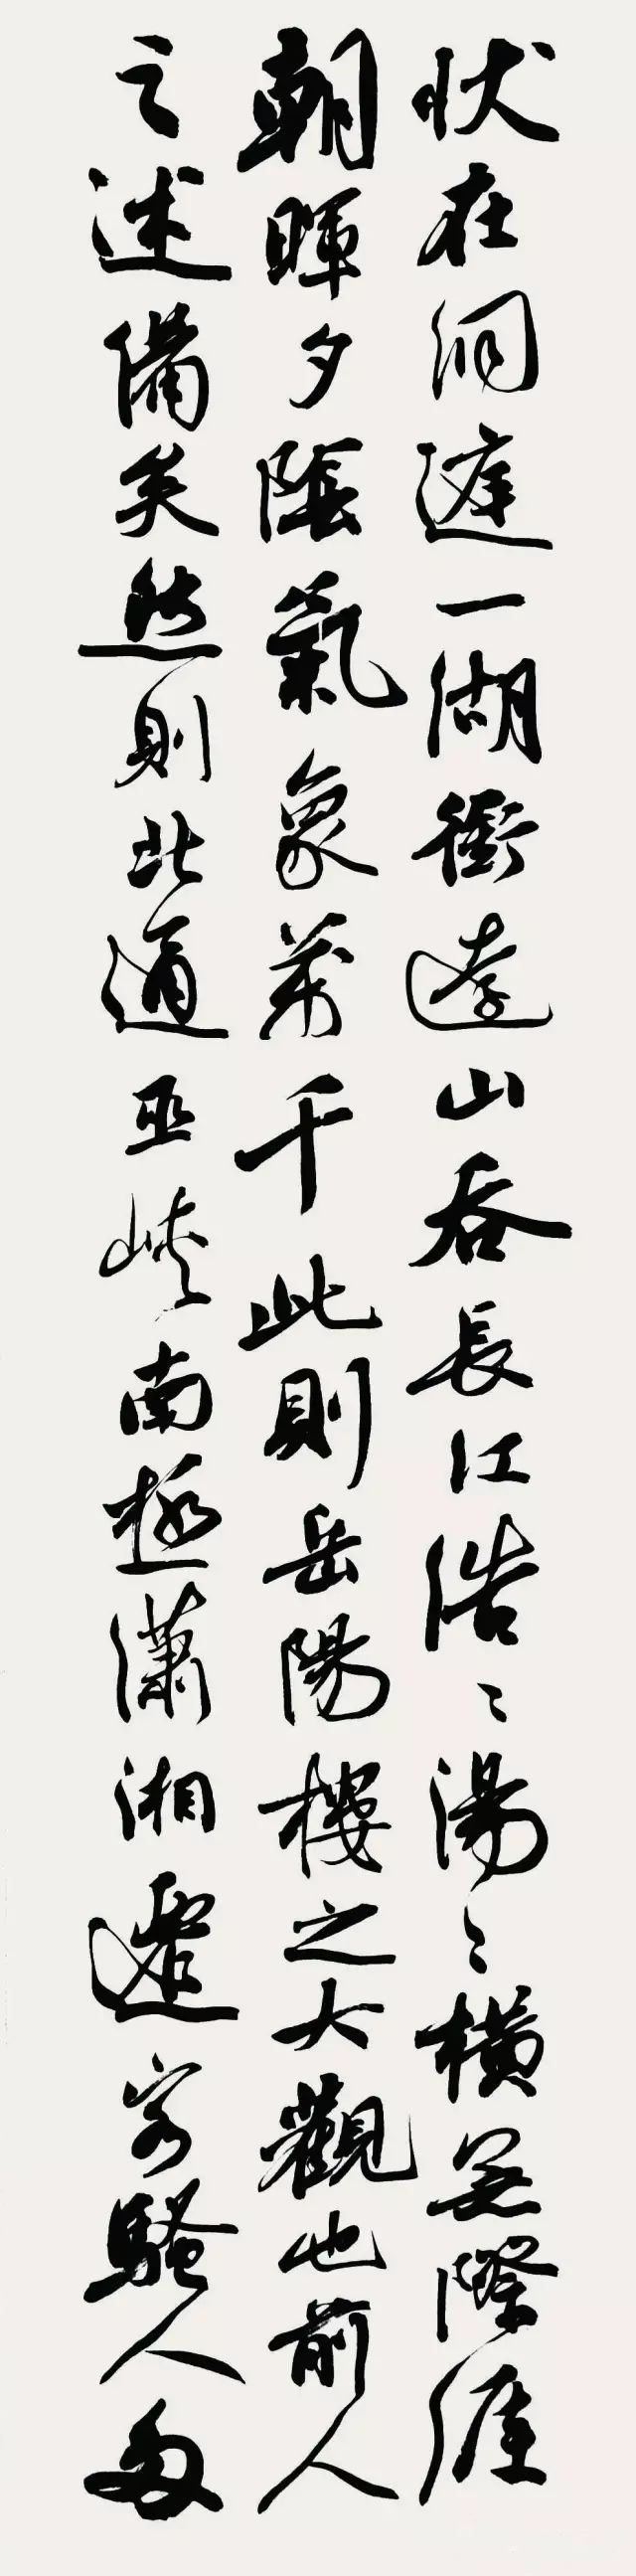 状在洞庭一湖銜遠山吞長江浩〻湯〻横無際涯
朝暉夕陰氣象萬千此則岳陽樓之大觀也前人
之述備矣然則北通巫峽南極瀟湘遷客騷人多